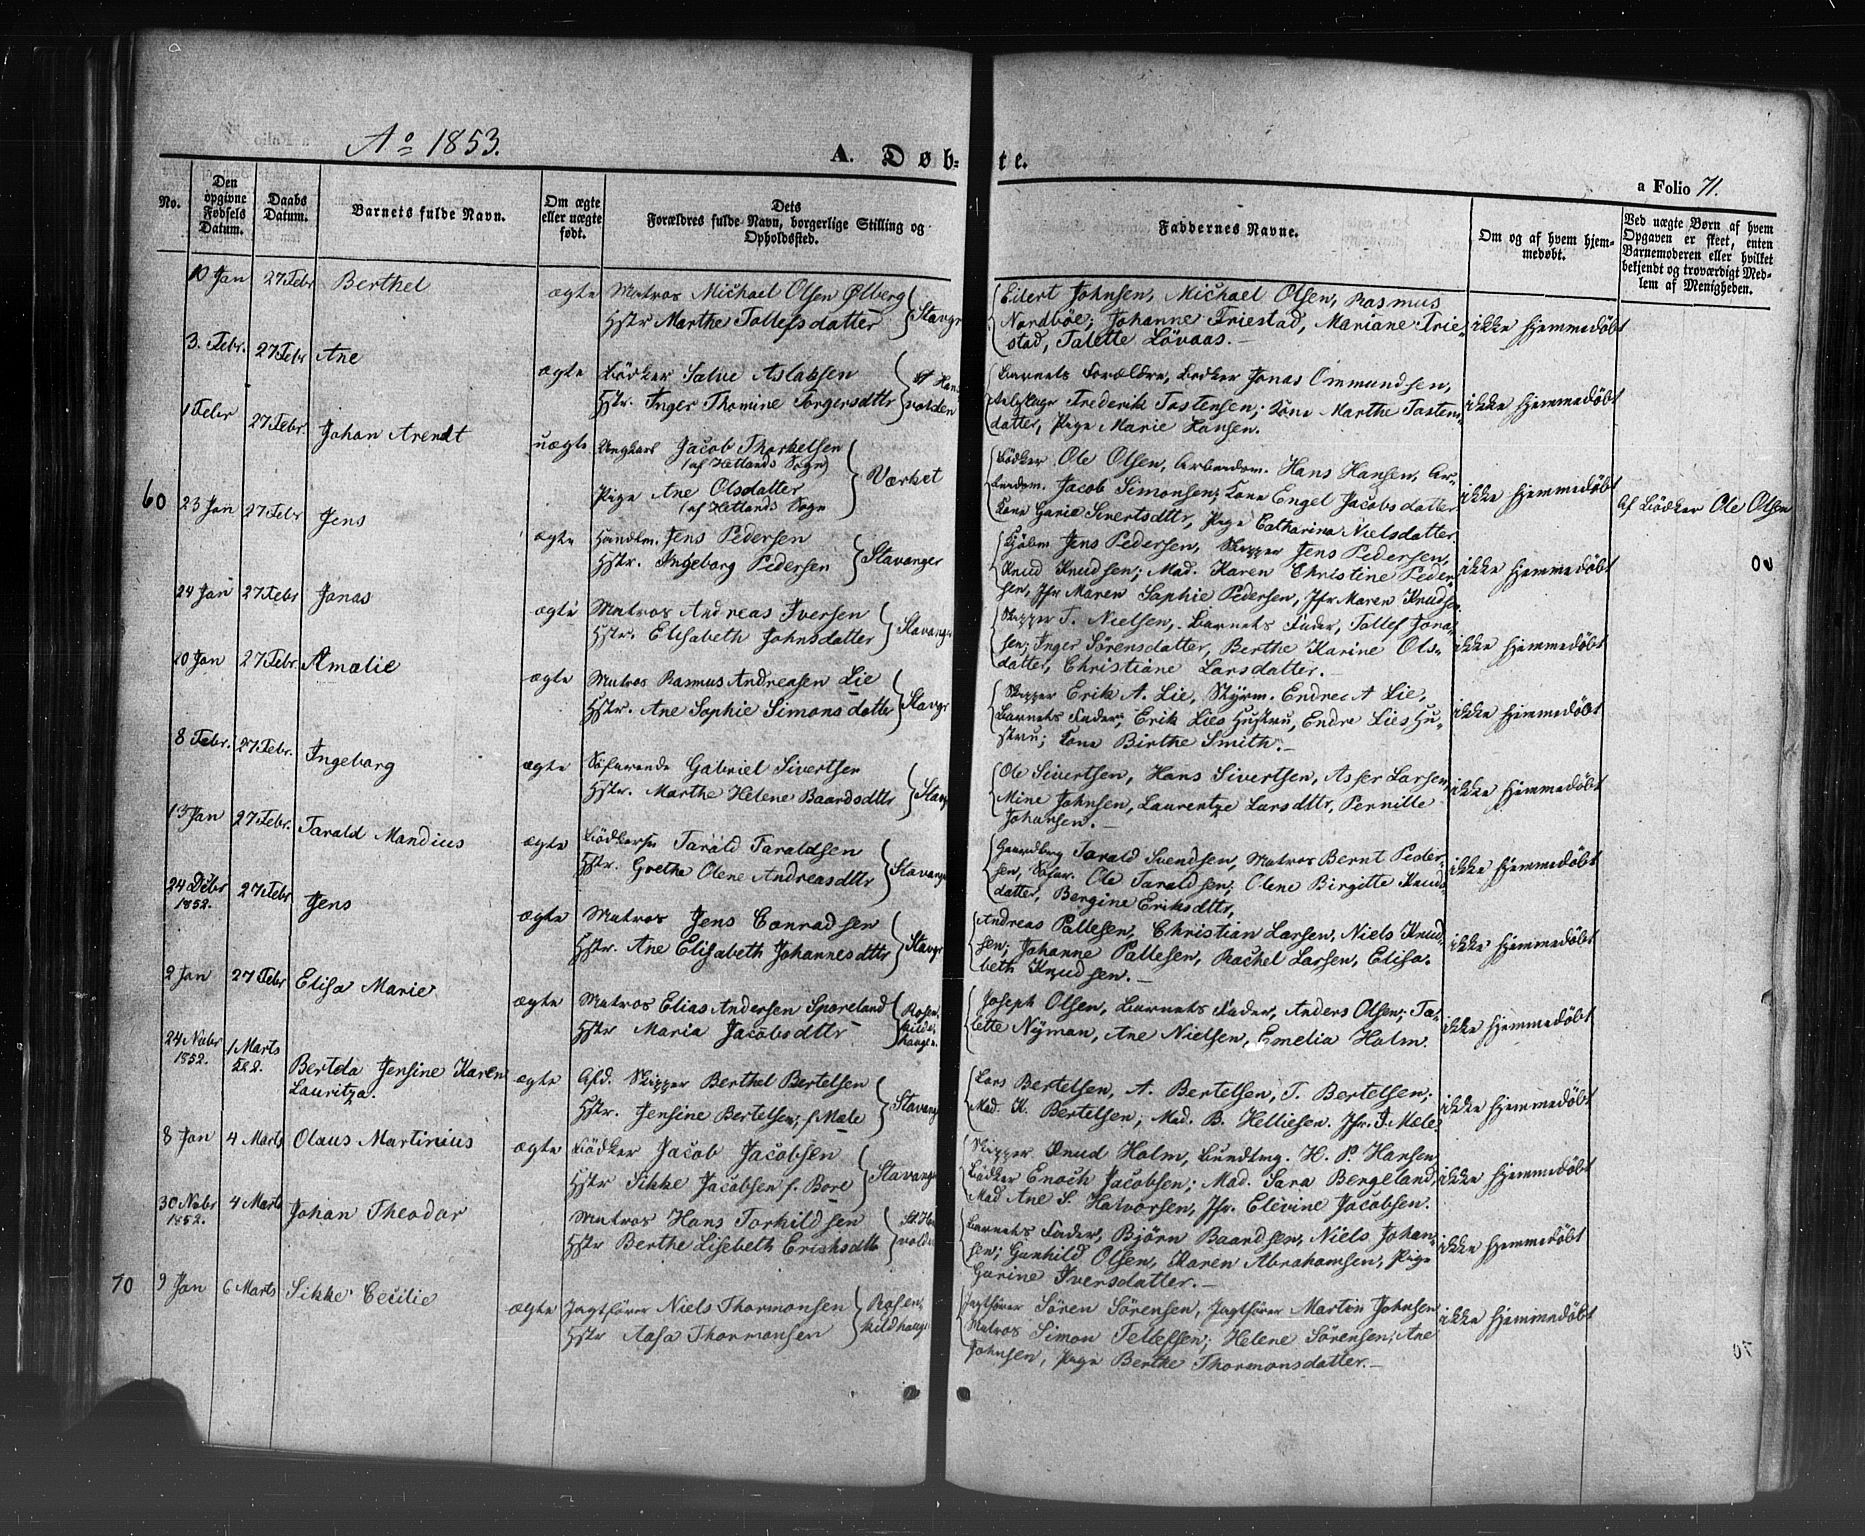 Ao 1853.
A. Døb-te.
a Folio 71.
No.
Den opgivne Fødsels Datum.
Daabs Datum.
Barnets fulde Navn.
Om ægte eller uægte født.
Dets Forældres fulde Navn, borgerlige Stilling og Opholdssted.
Faddernes Navne.
Om og af hvem hjem-medøbt.
Ved uægte Børn af hvem Opgaven er skeet, enten Barnemoderen eller hvilket bekjendt og troværdigt Med-lem af Menigheden.
10 Jan 27 Febr Berthel ægte Matros Michael Olsen Ølberg
Hstr Marthe Tollefsdatter Stavgr
Eilert Johnsen, Michael Olsen, Rasmus
Nordbøe; Johanne Friestad, Mariane Frie-
stad, Talette Lövaas.
ikke hjemmedøbt
3. Febr. 27 Febr Ane ægte Bødker Salve Aslaksen
Hstr. Inger Thomine Torgersdttr St Hans volden
Barnets Forældre, Bødker Jonas Ommundsen,
Frederik Tostensen; Kone Marthe Tosten-
datter, Pige Marie Hansen.
ikke hjemmedøbt
1 Febr 27 Febr. Johan Arendt uægte Ungkarl Jacob Thorkelsen
(af Hetlands Sogn)
Pige Ane Olsdatter
(af Hetlands Sogn Værket
Bödker Ole Olsen, Arbeidsm. Hans Hansen, Ar-
beidsm. Jacob Simonsen; Kone Engel Jacobsdatter
Kone Garia Sivertsdttr, Pige Catharina Nielsdatter.
ikke hjemmedøbt
af Bödker Ole Olsen
60 23 Jan 27 Febr Jens ægte Handlm. Jens Pedersen
Hstr. Ingeborg Pedersen Stavanger
Kjøbm Jens Pedersen, Skipper Jens Pedersen,
Knud Knudsen; Mad. Karen Christine Peder-
sen, Jfr Maren Sophie Pedersen, Jfr Maren Knudsen
ikke hjemmedøbt
24 Jan 27 Febr Jonas ægte Matros Andreas Iversen
Hstr. Elisabeth Johnsdatter Stavanger
Skipper T. Nielsen, Barnets Fader, Tollef Jona-
sen; Inger Sörensdatter, Berthe Karine Ols-
datter, Christiane Larsdatter.
ikke hjemmedöbt
10 Jan 27 Febr. Amalie ægte Matros Rasmus Andreasen Lie
Hstr. Ane Sophie Simonsdatter Stavgr
Skipper Erik A. Lie, Styrm. Endre A Lie,
Barnets Fader; Erik Lies Hustru, Endre Lies Hu-
stru; Kone Birthe Smith.
ikke hjemmedöbt
8 Febr. 27 Febr. Ingeborg ægte Söfarende Gabriel Sivertsen
Hstr. Marthe Helene Baardsdttr Stavgr
Ole Sivertsen, Hans Sivertsen, Asser Larsen
Mine Johnsen, Laurentze Larsdttr, Pernille
Johansen.
ikke hjemmedöbt
13 Jan 27 Febr. Tarald Mandius ægte Bödkersv Tarald Taraldsen
Hstr. Grethe Olene Andreasdttr Stavanger
Tarald Svendsen, Matros Bernt Peder-
sen, Söfar. Ole Taraldsen; Olene Birgitte Knuds
datter, Bergine Eriksdttr,
ikke hjemmedöbt
24 Debr 1852. 27 Febr Jens ægte Matros Jens Conradsen
Hstr. Ane Elisabeth Johannesdttr Stavgr
Andreas Pallesen, Christian Larsen, Niels Knud
sen; Johanne Pallesen, Rachel Larsen, Elisa-
beth Knudsen.
ikke hjemmedöbt
2 Jan 27 Febr Elisa Marie ægte Matros Elias Andersen Sporeland
Hstr Maria Jacobsdttr Rosen-kildehaugen
Joseph Olsen, Barnets Fader, Anders Olsen; Ta-
lette Nyman, Ane Nielsen, Emelia Holm.
ikke hjemmedöbt
24 Nvbr 1852. 1 Marts Bertda Jensine Karen
Lauritza. ægte Afd. Skipper Berthel Bertelsen
Hstr. Jensine Bertelsen; f. Mæle Stavang
Lars Bertelsen, A. Bertelsen, T. Bertelsen;
Mad. K. Bertelsen; Mad. B. Helliesen. Jfr. J. Mæle
ikke hjemmedöbt
8 Jan 4 Marts Olaus Martinius ægte Bödker Jacob Jacobsen
Hstr Sikke Jacobsen f. Bore Stavanger
Skipper Knud Holm, Bundtmg. H. P. Hansen
Bödker Enoch Jacobsen; Mad. Sara Bergeland,
Mad Ane S. Halvorsen, Jfr. Elevine Jacobsen.
ikke hjemmedöbt
30 Nvbr 1852. 4 Marts Johan Theodor Matros Hans Torkildsen
Hstr Berthe Lisebeth Eriksdttr St. Hans volden
Barnets Fader, Björn Baardsen, Niels Johan-
sen; Gunhild Olsen, Karen Abrahamsen, Pige
Gurine Iversdatter.
ikke hjemmedöbt
70 9 Jan 6 Marts Sikke Cecilie ægte Jagtfører Niels Thormonsen
Hstr Aasa Thormonsen Rosen-kildhauge
Jagtfører Sören Sörensen, Jagtfører Martin Johnsen
Matros Simon Tellefsen; Helene Sörensen; Ane
Johnsen, Pige Berthe Thormonsdatter.
ikke hjemmedöbt